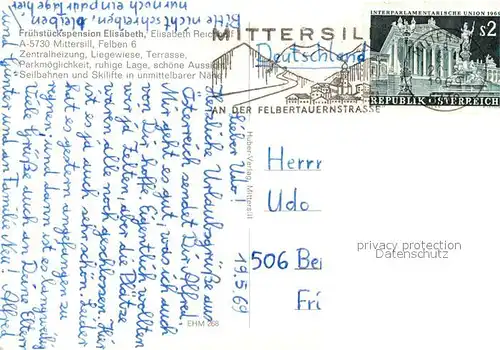 Bitte nicht schreiben, bleiben
nur noch ein paar Tage hier.
Frühstückspension Elisabeth, Elisabeth
A-5730 Mittersill, Felben 6
Zentralheizung, Liegewiese, Terrasse,
Parkmöglichkeit, ruhige Lage, schöne
Seilbahnen und Skilifte in unmittelbarer Nähe
MITTERSILL
AN DER FELBERTAUERNSTRASSE
INTERPARLAMENTARISCHE UNION
S2
REPUBLIK ÖSTERREICH
Deutschland
19.5.69
Lieber Udo!
Herzliche Urlaubsgrüße aus
Österreich sendet Dir Alfred.
Mir geht es gut, was ich auch
von Dir hoffe. Eigentlich wollten
wir ja zelten, aber die Plätze
waren alle noch geschlossen. Hier
ist es ja auch sehr schön. Leider
hat es gestern angefangen zu
regnen und dann ist es langweilig.
Viele Grüße auch an Deine Eltern
und Günter und an Familie Neu! Alfred
Huber-Verlag, Mittersill
EHM 268
Herrn
Udo
506 Be
Fri
privacy protection
Datenschutz